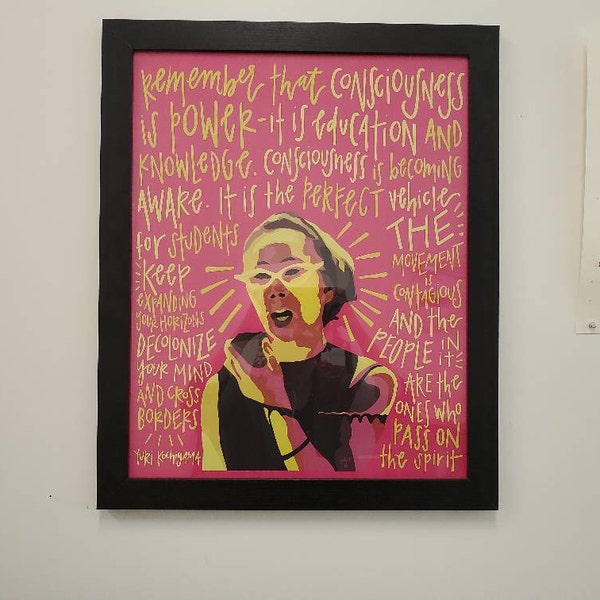 Remember that CONSCIOUSNESS
is POWER-it is education AND
KNOWLEDGE. CONSCIOUSNESS is becoming
AWARE. It is the PERFECT vehicle
for STUDENTS
KEEP
EXPANDING
YOUR HORIZONS
DECOLONIZE
YOUR MIND
AND CROSS
BORDERS
YURI KOCHIYAMA
THE
MOVEMENT
is
CONTAGIOUS
AND the
PEOPLE IN
it
ARE the
ONES who
PASS ON
the spirit